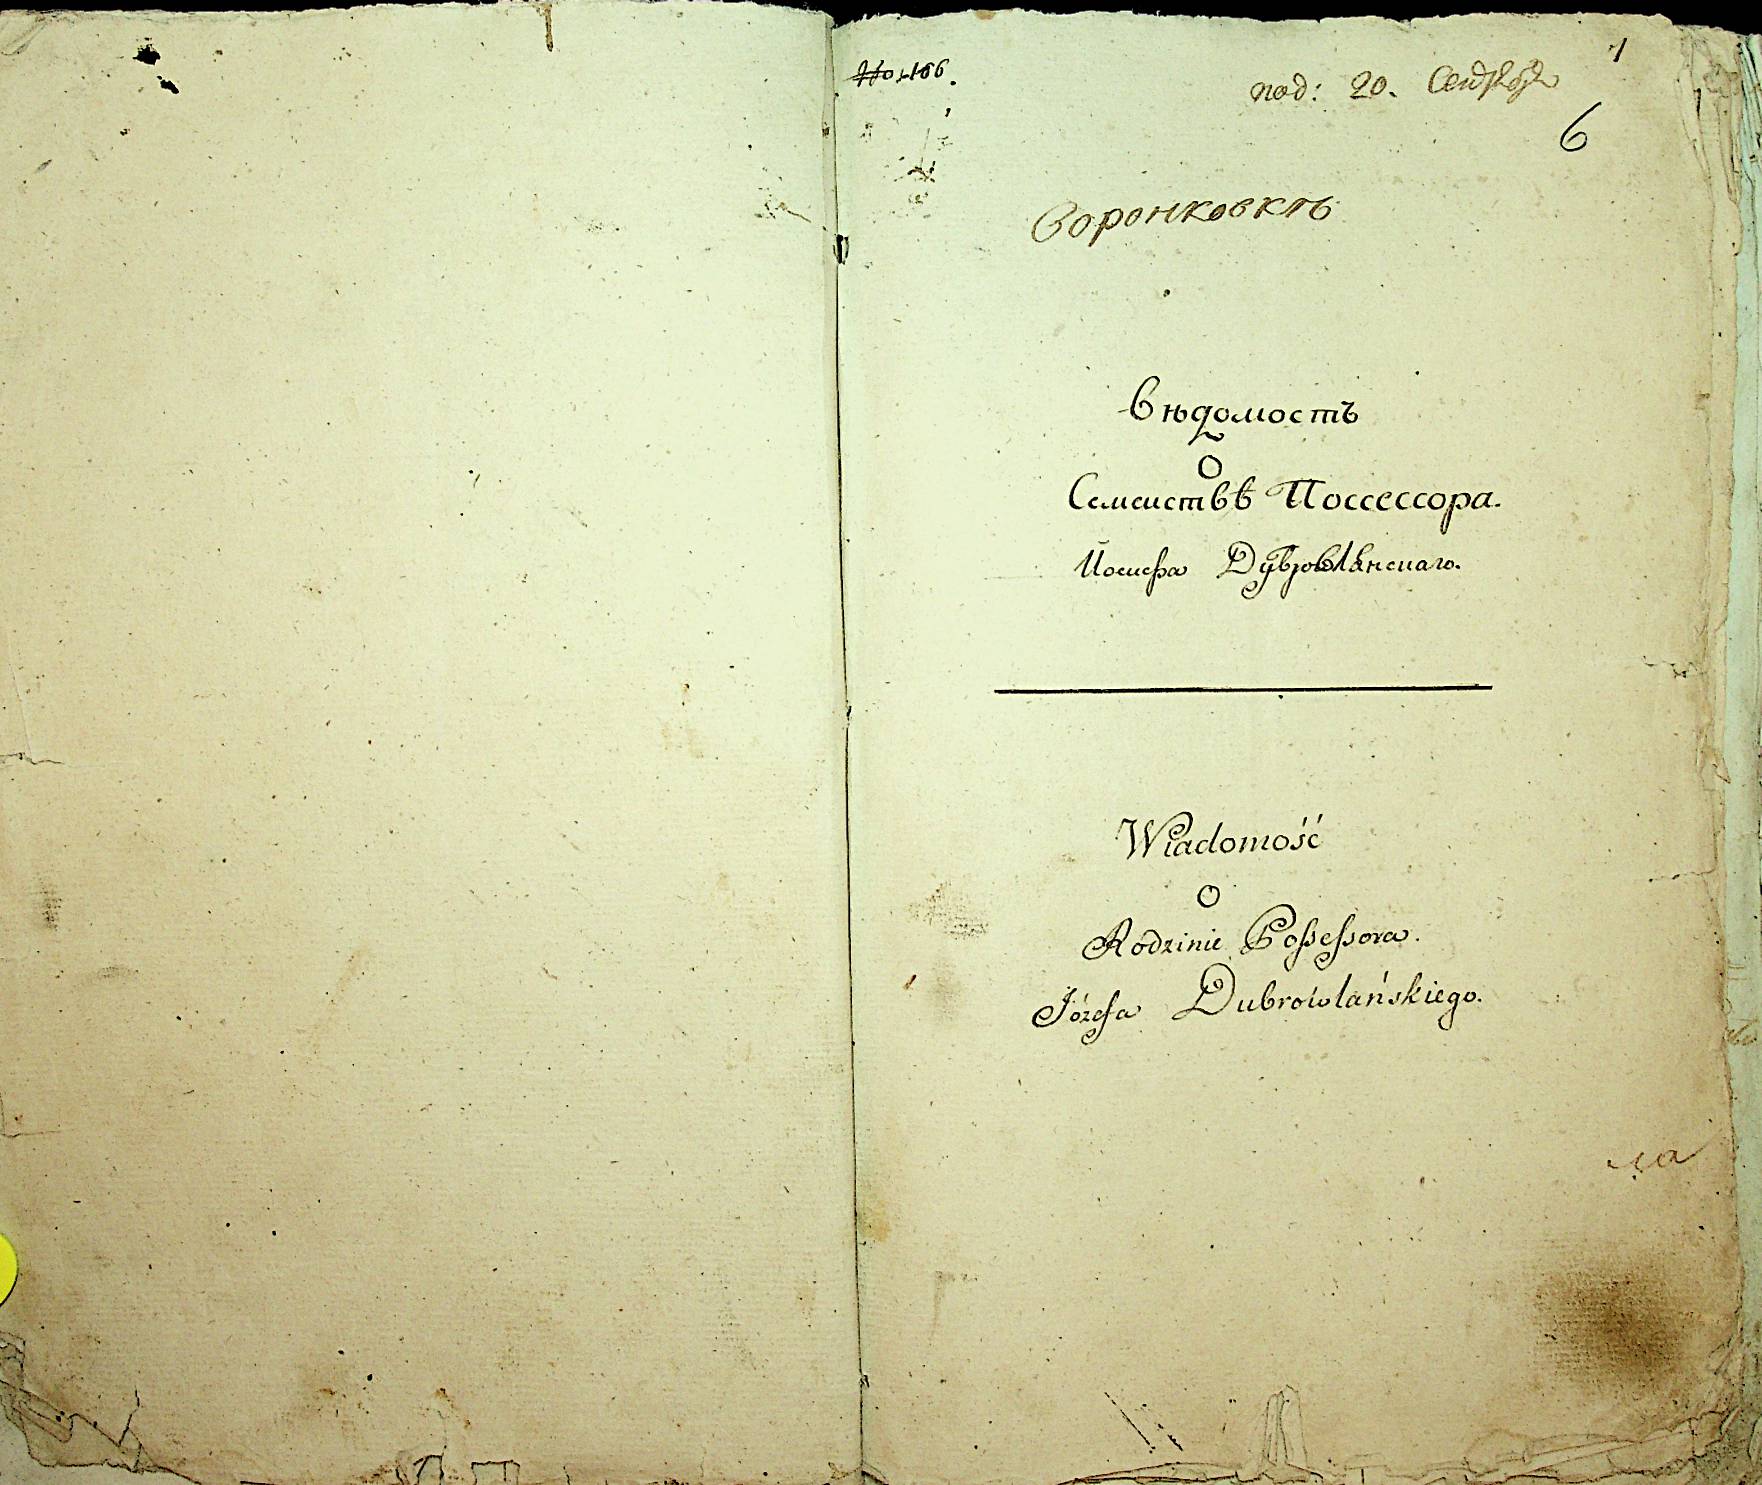 No 166.
1
под: 20. Сентября
6
Воронковкѣ
Вѣдомостъ
О
Семеиствѣ Поссессора.
Йосифа Дубровлянскаго.
Wiadomość
O
Rodzinie Possessora.
Józefa Dubrowlańskiego.